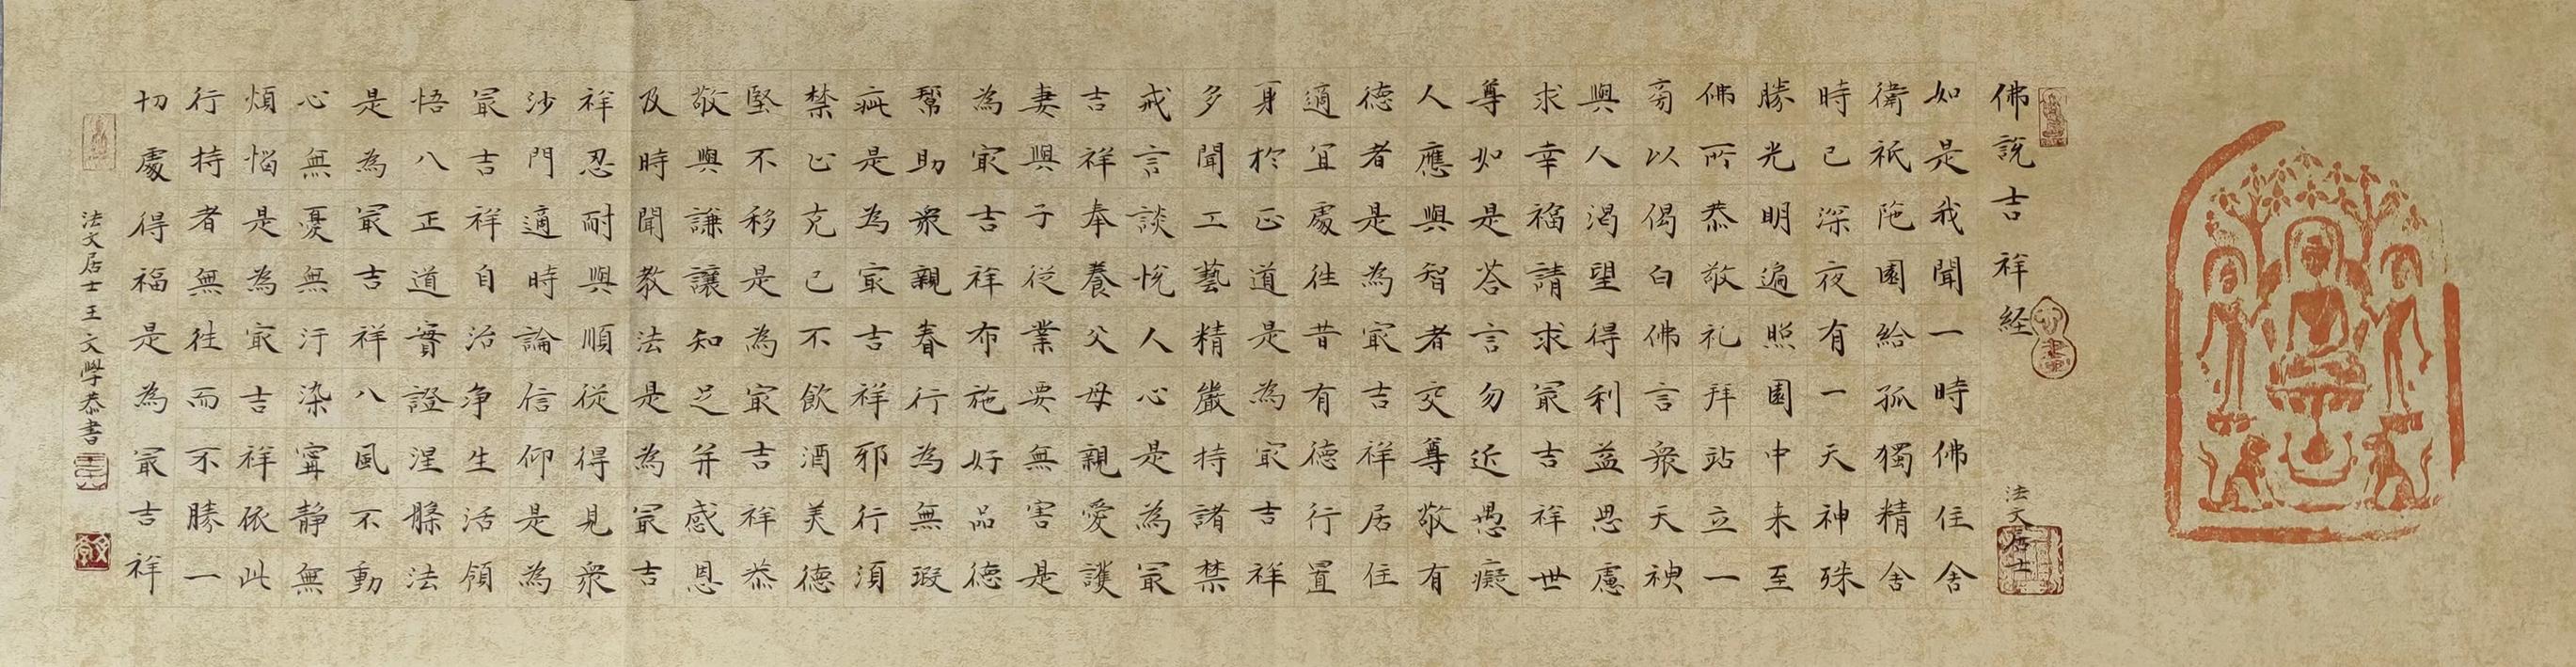 佛說吉祥経
法文居士
如是我聞一時佛住舍
衛祇陁園給孤獨精舍
時已深夜有一天神殊
勝光明遍照園中来至
佛所恭敬礼拜站立一
旁以偈白佛言衆天神
與人渴望得利益思慮
求幸福請求最吉祥世
尊如是答言勿近愚癡
人應與智者交尊敬有
德者是為最吉祥居住
適宜處往昔有德行置
身於正道是為最吉祥
多聞工藝精嚴持諸禁
戒言談悅人心是為最
吉祥奉養父母親愛護
妻與子從業要無害是
為最吉祥布施好品德
幫助衆親眷行為無瑕
疵是為最吉祥邪行須
禁止克己不飲酒美德
堅不移是為最吉祥恭
敬與謙讓知足并感恩
及時聞教法是為最吉
祥忍耐與順從得見衆
沙門適時論信仰是為
最吉祥自治净生活領
悟八正道實證涅槃法
是為最吉祥八風不動
心無憂無汙染寧靜無
煩惱是為最吉祥依此
行持者無往而不勝一
切處得福是為最吉祥
法文居士王文學恭書